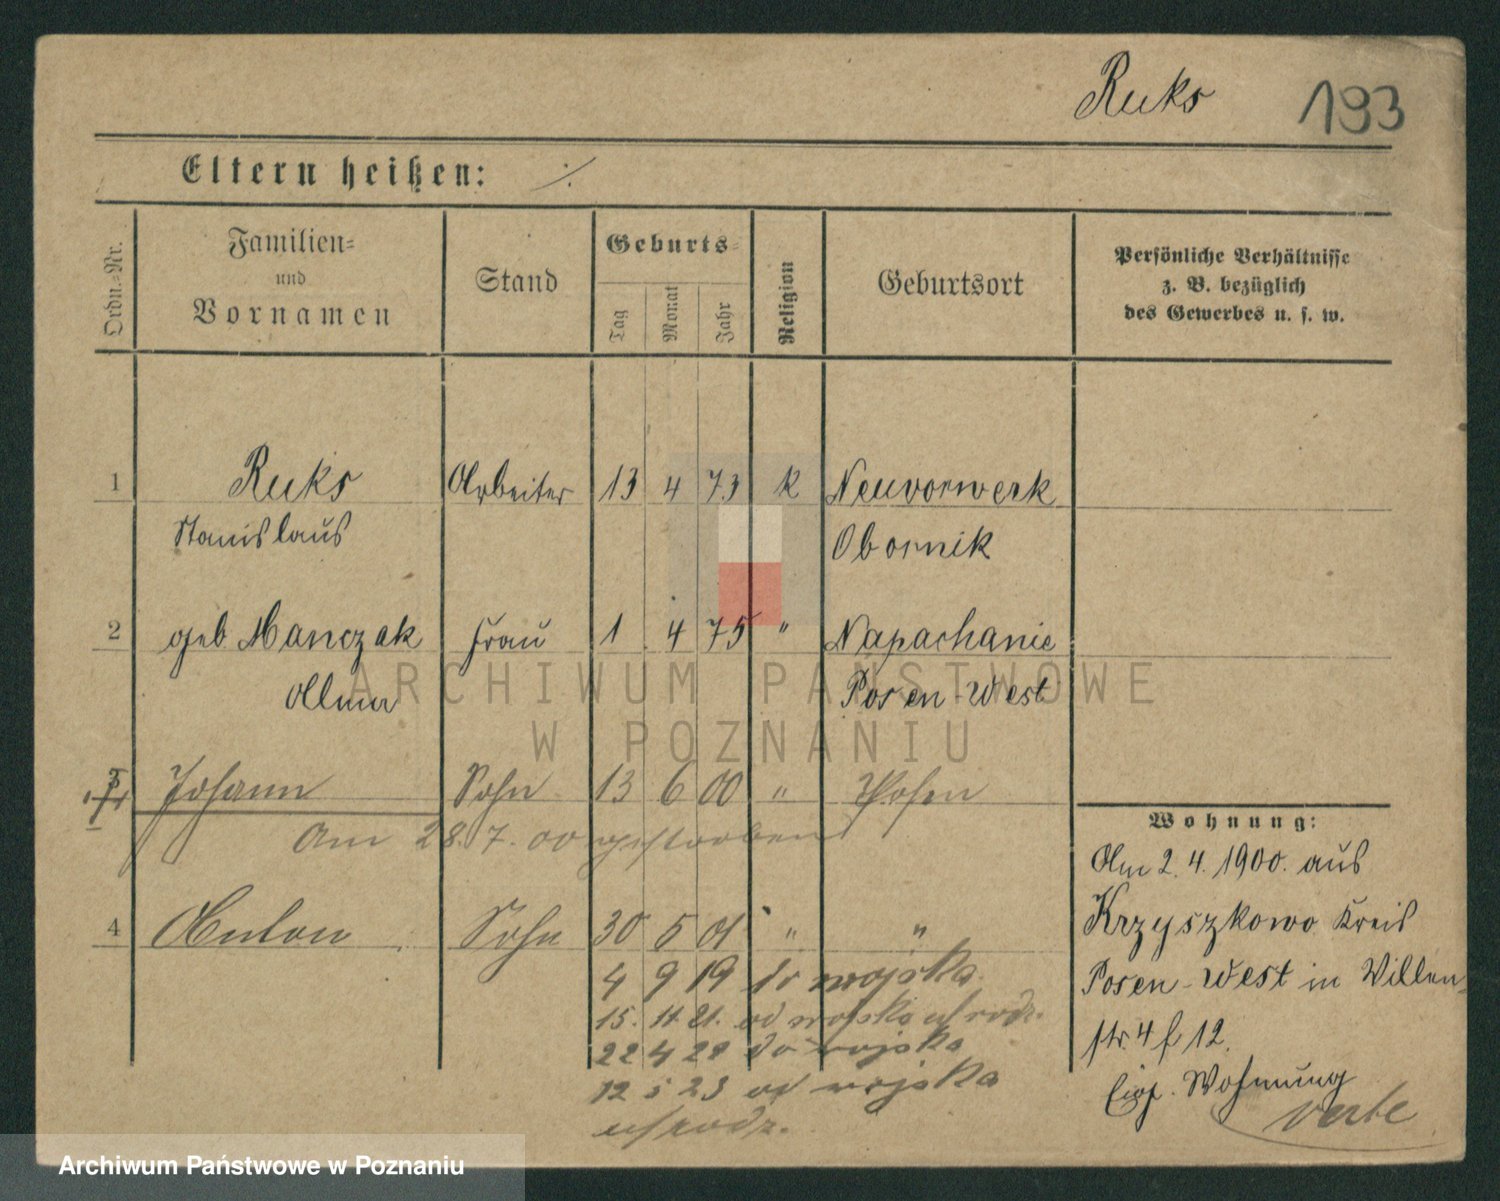 Ruks 193
Eltern heißen: ./.
Ordn.-Nr.
Familien-
und
Vornamen
Stand
Geburts-
Tag
Monat
Jahr
Religion
Geburtsort
Persönliche Verhältnisse
z. B. bezüglich
des Gewerbes u. s. w.
1 Ruks Arbeiter 13 4 73 k Neuvorwerk
Stanislaus Obornik
2 geb. Manczak Frau 1 4 75 " Napachanie
Posen-West
3 Johann Sohn 13 6 00 " Posen
Am 28.7.00 gestorben
4 Anton Sohn 30 5 01 " "
4 9 19 do wojska
15. 11 21. od wojska
22 4 do wojska
12 5 23 od wojska
Wohnung:
Am 2.4.1900. aus
Krzyszkowo Kreis
Posen-West in Willen-
str. 4 12.
Wohnung
verte
ARCHIWUM PAŃSTWOWE
W POZNANIU
Archiwum Państwowe w Poznaniu